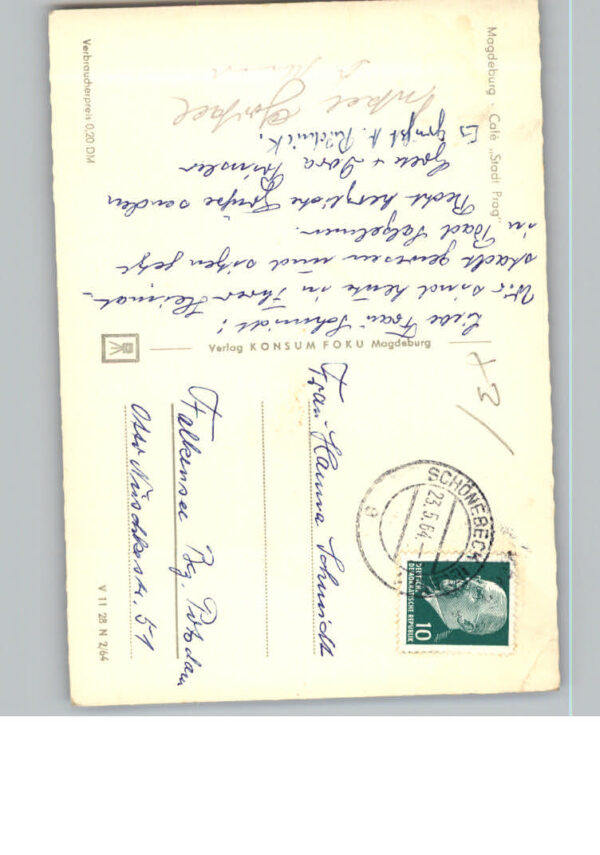 Magdeburg · Café „Stadt Prag“
Liebe Frau Schmidt!
Wir sind heute in Ihrer Heimat-
stadt gewesen und sitzen jetzt
in Bad Salzelmen.
Recht herzliche Grüße senden
+ Dora
Es grüßt
Verbraucherpreis 0,20 DM
Verlag KONSUM FOKU Magdeburg
+3/
SCHÖNEBECK
23.5.64.-
DEUTSCHE
DEMOKRATISCHE REPUBLIK
10
Frau Hanna Schmidt
Falkensee Bz. Potsdam
Otto Nuschkestr. 51
V 11 28 N 2/64